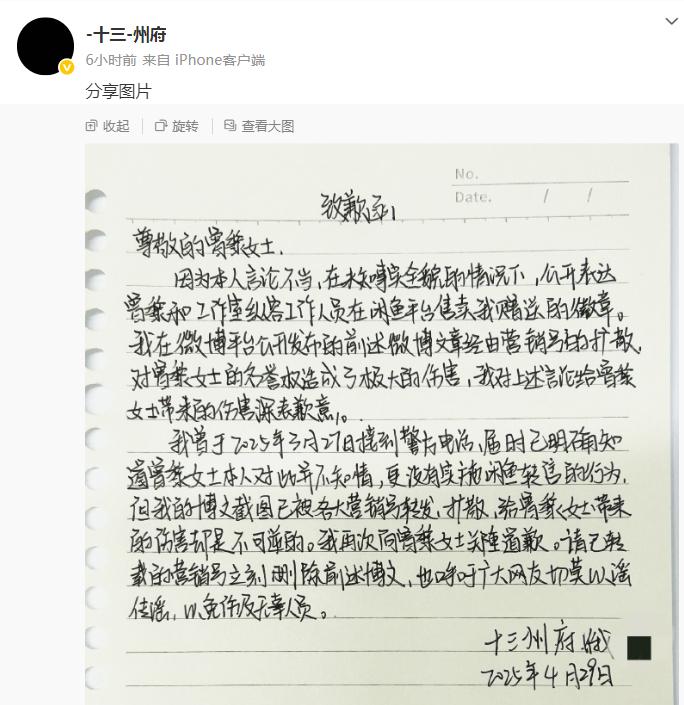 -十三-州府
6小时前 来自 iPhone客户端
分享图片
收起 旋转 查看大图
No.
Date. / /
致歉函
尊敬的曾黎女士.
因为本人言论不当,在未知晓实全貌的情况下,公开表达
曾黎和工作室纵容工作人员在闲鱼平台售卖我赠送的徽章。
我在微博平台公开发布的前述微博文章经由营销号的扩散,
对曾黎女士的名誉权造成了极大的伤害,我对上述言论给曾黎
女士带来的伤害深表歉意。
我曾于2025年3月27日接到警方电话,届时已明确知
道曾黎女士本人对此并不知情,更没有实施闲鱼转售的行为,
但我的博文截图已被各大营销号转发、扩散,给曾黎女士带来
的伤害却是不可逆的。我再次向曾黎女士关注道歉。请已转
载的营销号立刻删除前述博文,也呼吁广大网友切莫以谣
传谣,以免伤及无辜人员。
十三州府
2025年4月29日